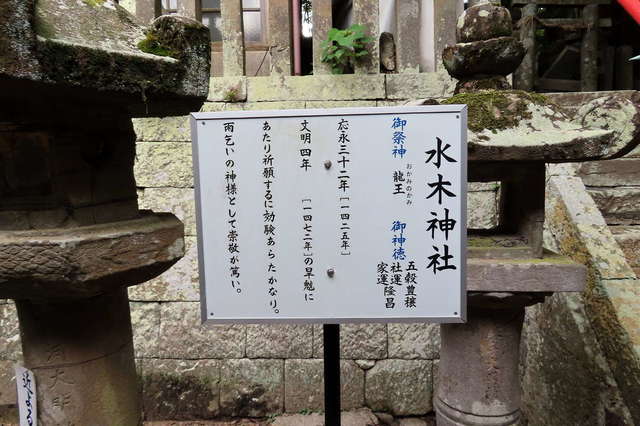 水木神社
御祭神 龍王 御神徳 五穀豊穣
おかみのかみ
社運隆昌
家運
応永三十二年[一四二五年]
文明四年 [一四七二年]の旱魃に
あたり祈願するに効験あらたかなり。
雨乞いの神様として崇敬が篤い。
近よる